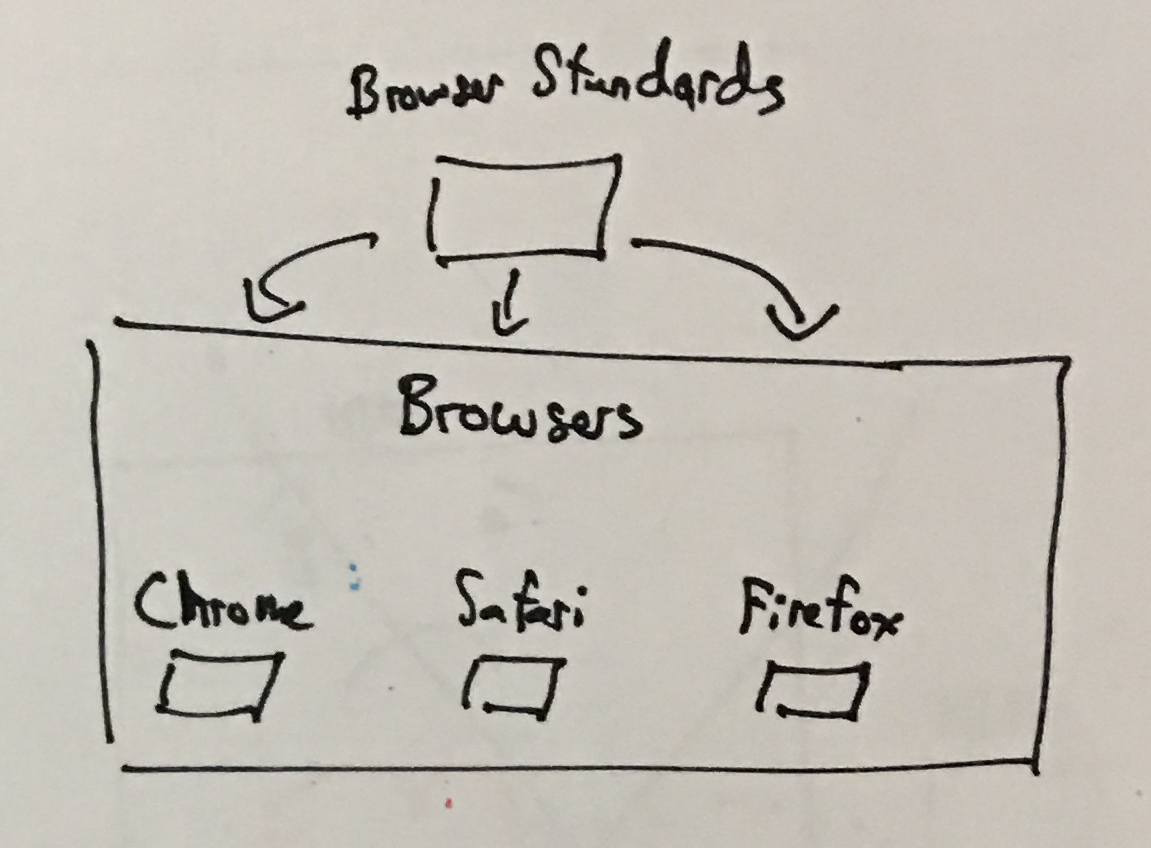 Browser Standards
Browsers
Chrome Safari Firefox